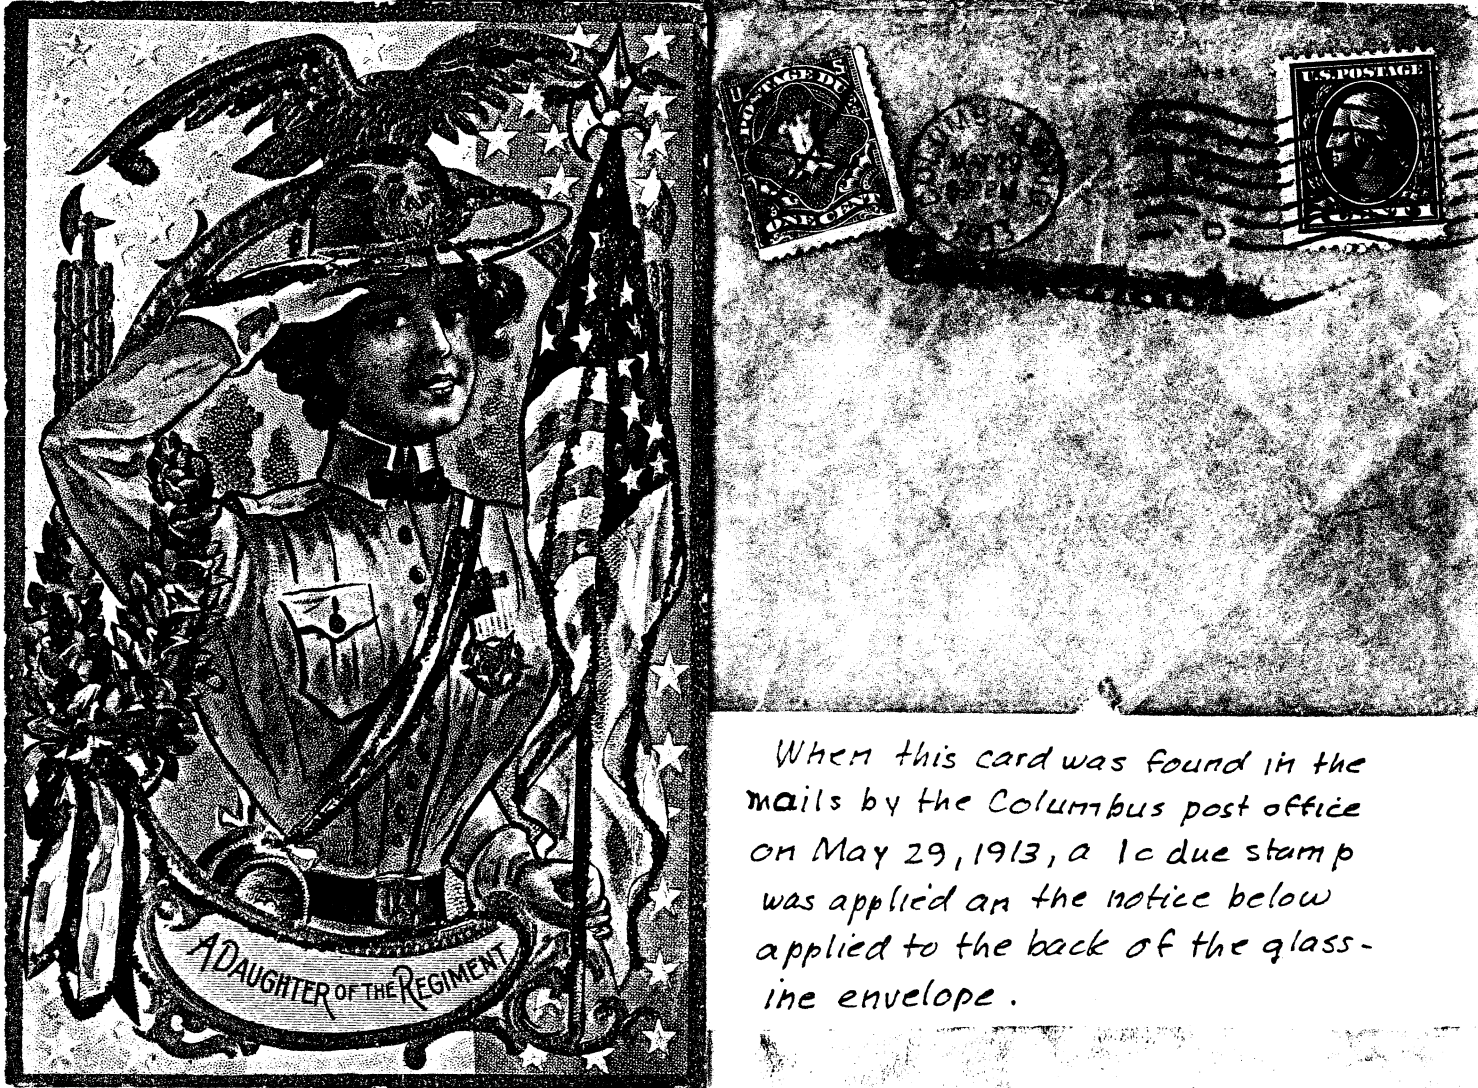 A DAUGHTER OF THE REGIMENT
POSTAGE DUE
ONE CENT
COLUMBUS
MAY 29
1913
D
U.S. POSTAGE
When this card was found in the
mails by the Columbus post office
on May 29, 1913, a 1c due stamp
was applied an the notice below
applied to the back of the glass-
ine envelope.